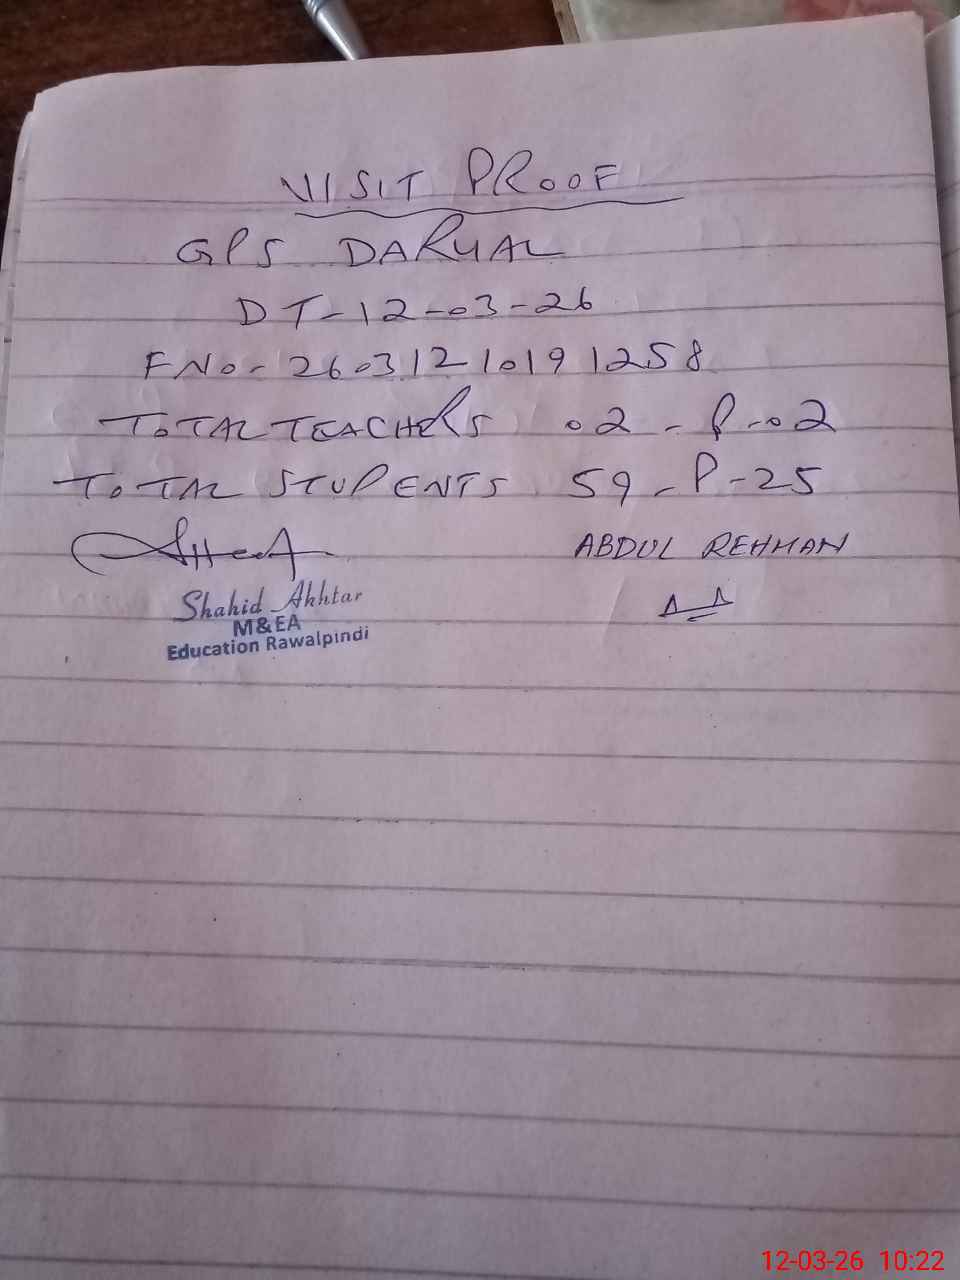 VISIT PROOF
GPS DARYAL
DT-12-03-26
FNo- 260312101912 58
TOTAL TEACHERS 02 - P-02
TOTAL STUDENTS 59 - P-25
ABDUL REHMAN
Shahid Akhtar
M&EA
Education Rawalpindi
12-03-26 10:22